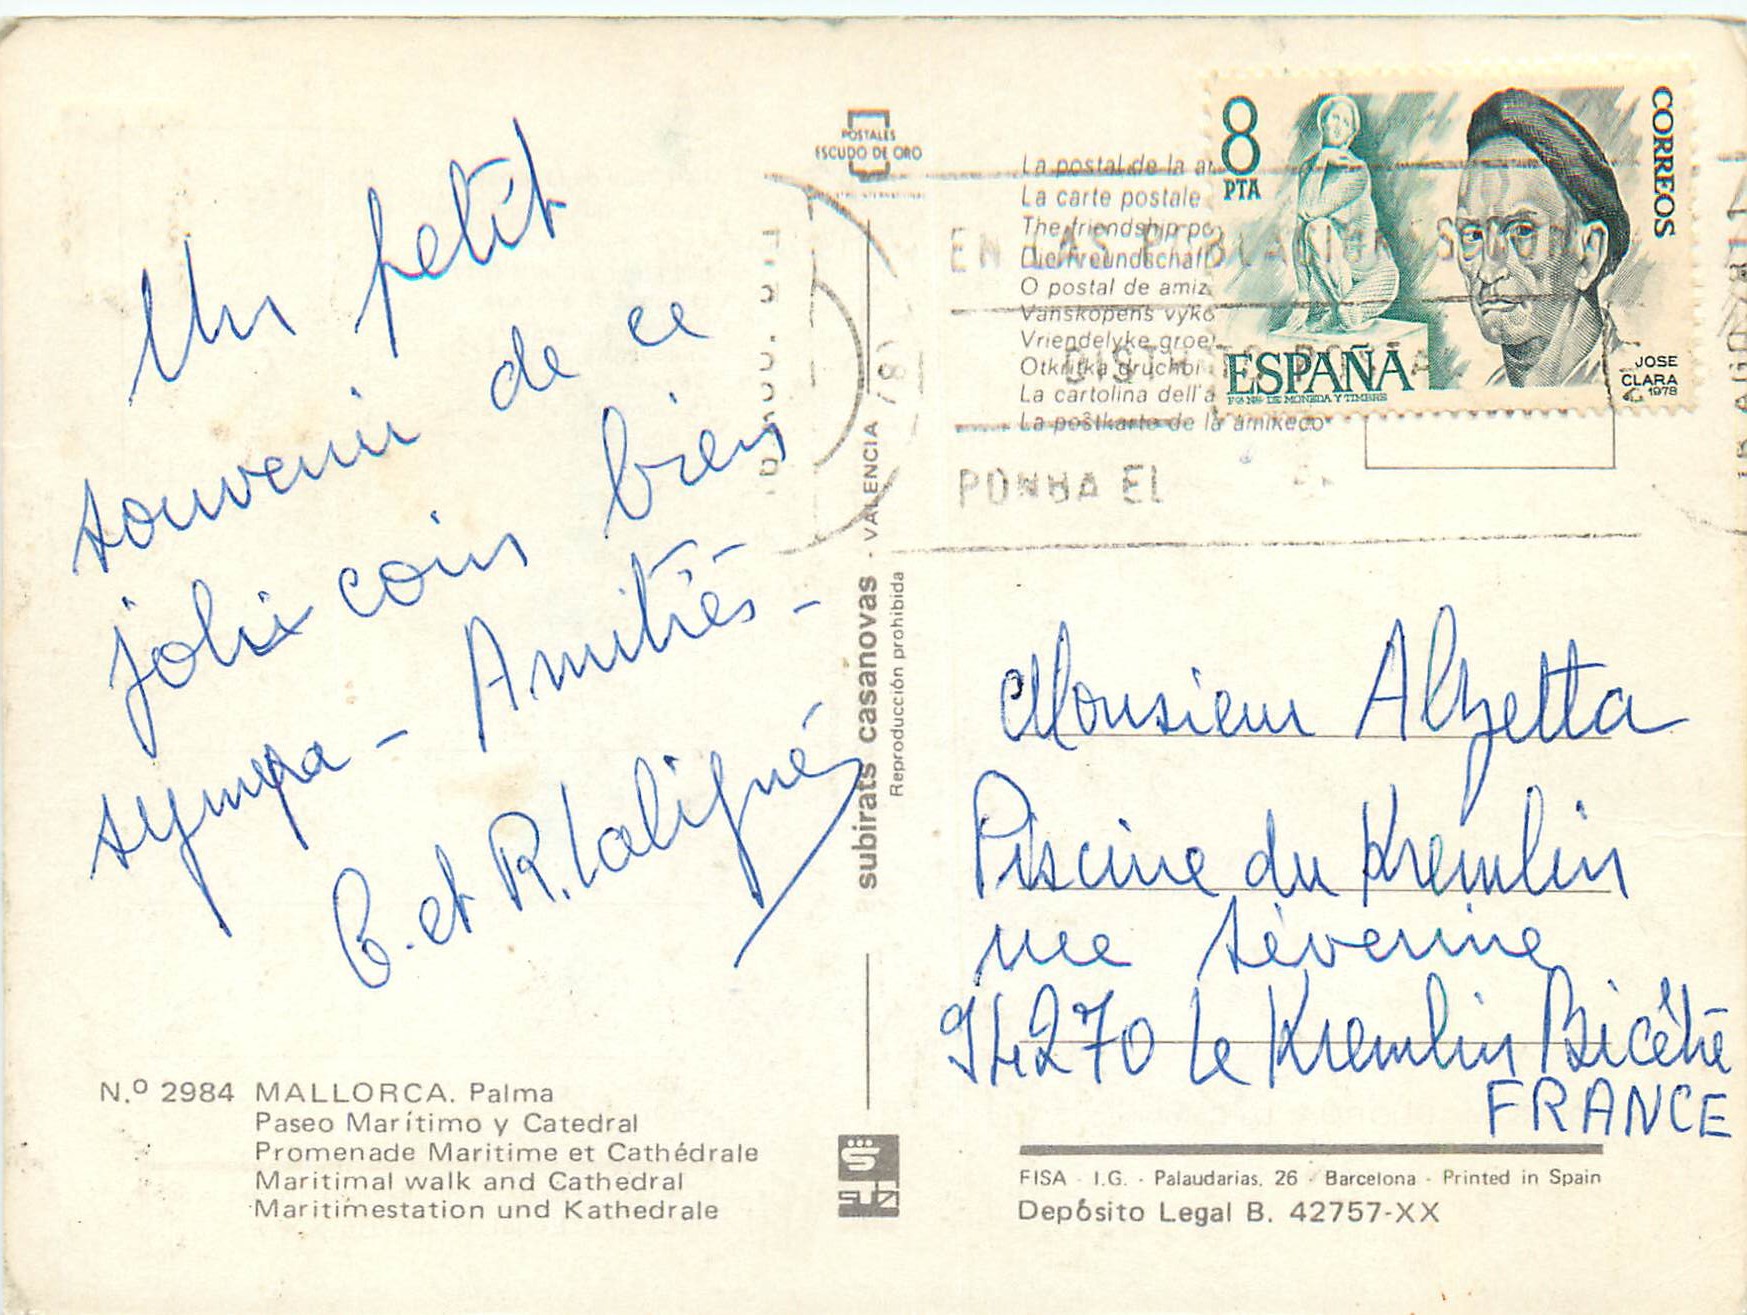 Un petit
souvenir de ce
joli coin bien
sympa - Amitiés -
et R.
POSTALES
ESCUDO DE ORO
subirats casanovas - VALENCIA
Reproducción prohibida
La postal de la
La carte postale
The friendship
Die Freundschaft
O postal de amiz
Vänskapens vyko
Vriendelyke groe
Otkritka druchbi
La cartolina dell'a
La poŝtkarto de la amikeco
EN LAS
PONGA EL
8
PTA
CORREOS
ESPAÑA
JOSE
CLARA
1978
F. N. DE MONEDA Y TIMBRE
Monsieur Alzetta
Piscine du Kremlin
rue Séverine
94270 Le Kremlin Bicêtre
FRANCE
N.º 2984 MALLORCA. Palma
Paseo Marítimo y Catedral
Promenade Maritime et Cathédrale
Maritimal walk and Cathedral
Maritimestation und Kathedrale
FISA - I.G. - Palaudarias, 26 - Barcelona - Printed in Spain
Depósito Legal B. 42757-XX